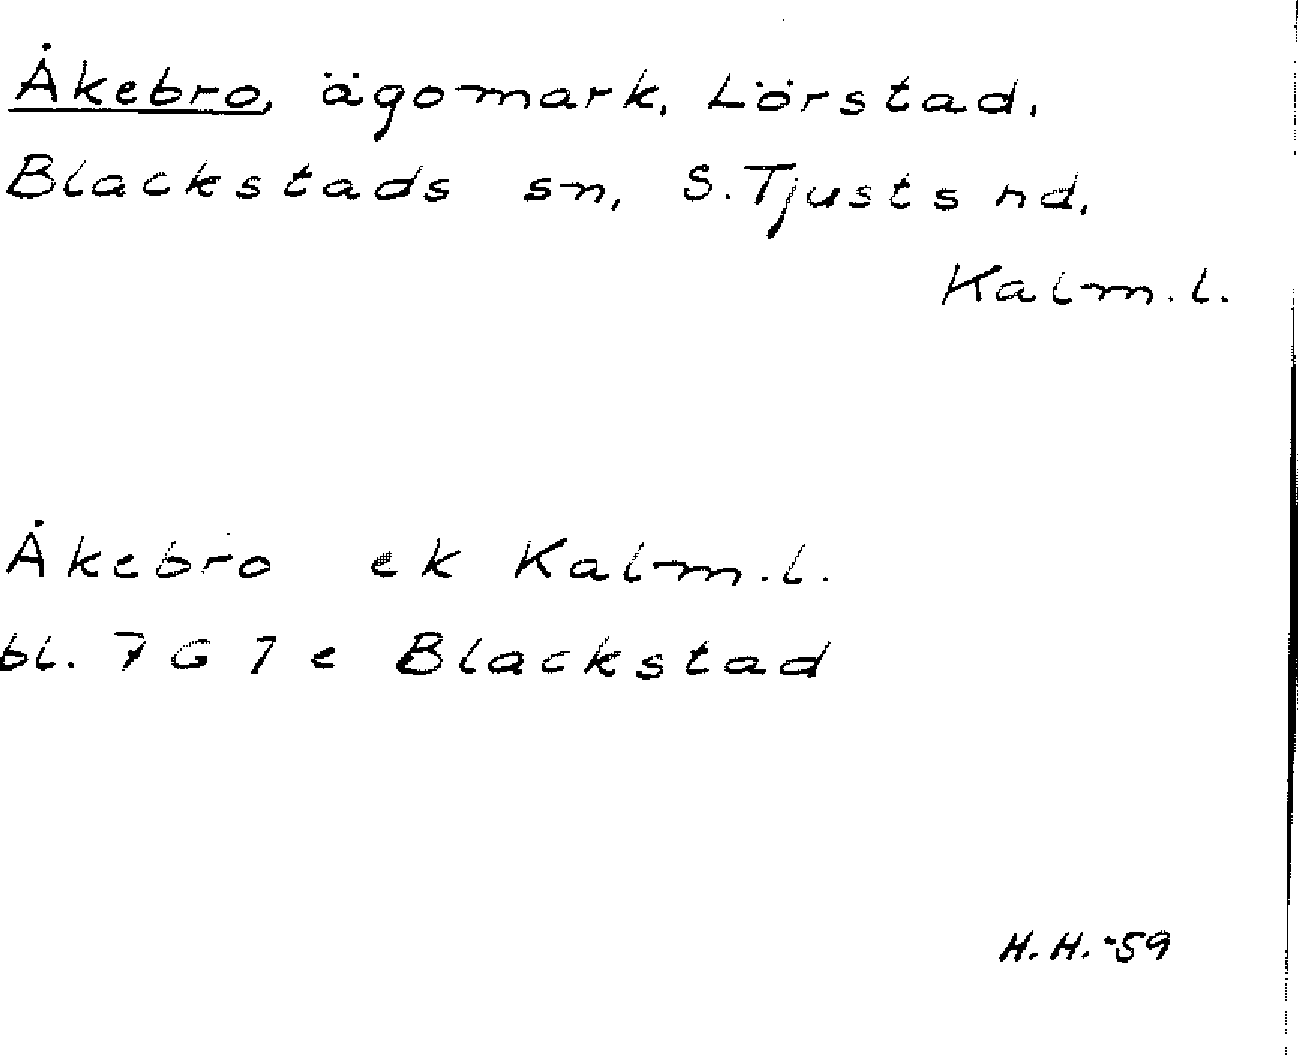 Åkebro, ägomark, Lörstad,
Blackstads sn, S. Tjusts hd,
Kalm. l.
Åkebro ek Kalm. l.
bl. 7 G 7 e Blackstad
H. H. -59